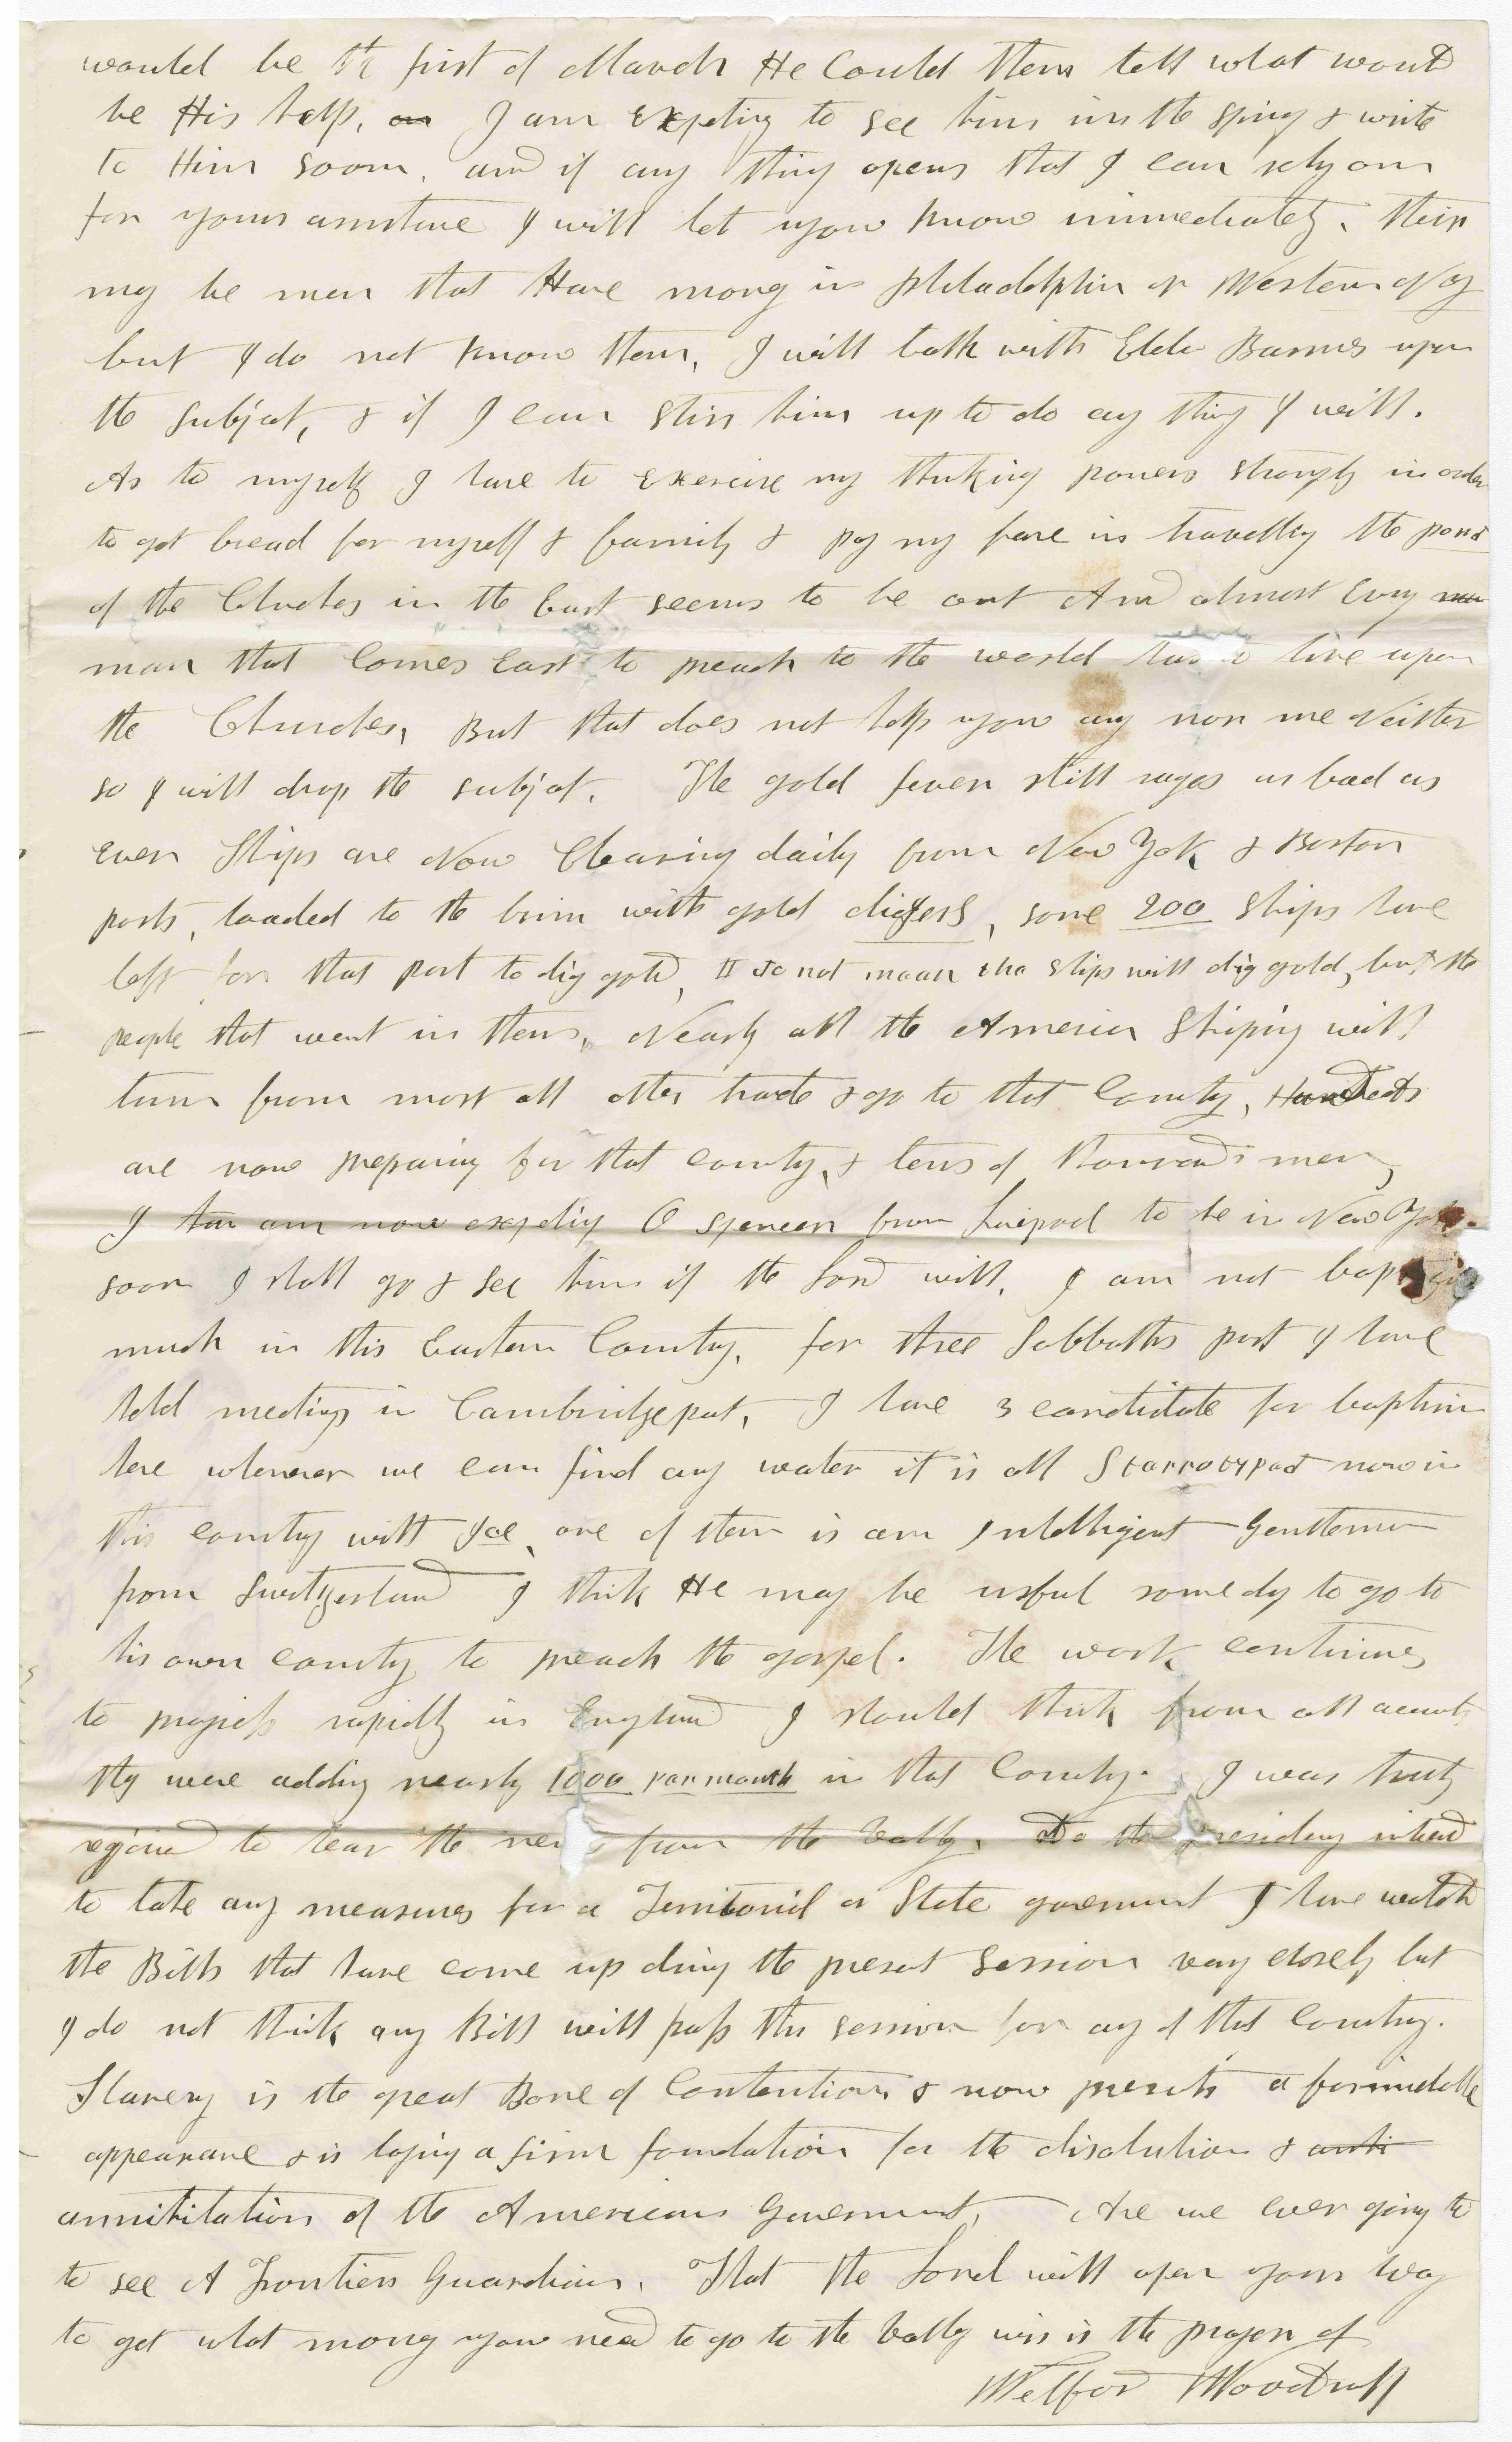 would be the first of March He Could then tell what would
be His help, an I am expeting to see him in the sping & write
to Him soon. and if any thing opens that I can rely on
for your asistance I will let you know immediately. their
may be men that Have money in philadelphia or Western NY
but I do not know them, I will talk with Elder Barnes upon
the subject, & if I can stir him up to do any thing I will.
As to myself I have to exercise my thinking powers strongly in order
to get bread for myself & family & pay my fare in travelling the
of the Churches in the East seems to be out And almost evry
man that Comes East to preach to the world has to live upon
the Churches, But that does not help you any nor me Neither
so I will drop the subject. The gold fever still rages as bad as
ever Ships are Now Clearing daily from New York & Boston
ports, loaded to the brim with gold digers, some 200 ships have
left for that port to dig gold, I do not mean the ships will dig gold, but the
people that went in them, Nearly all the American Shiping will
turn from most all other trade & go to that Country, Hundreds
are now preparing for that country, & tens of thousands men,
I am now expeting O Spencer from Liverpool to be in New York
soon I shall go & see him if the Lord will. I am not baptizing
much in this Eastern Country. for three Sabbaths past I have
held meetings in Cambridgeport, I have 3 candidate for baptism
here whenever we can find any water it is all Starrotyped now in
this country with Ice, one of them is an Intelligent Gentleman
from Switzerland I think He may be usful some day to go to
his own country to preach the gospel. The work continues
to progress rapidly in England I should think from all accounts
they were adding nearly 1000 per month in that Country. I was truly
rejoiced to hear the news from the vally. Do the presidency intend
to take any measures for a Territorial or State goverment I have watch
the Bills that have come up duing the present Session very closely but
I do not think any Bill will pass this session for any of that Country.
Slavery is the great Bone of Contention & now presents a formidable
appearance & is laying a firm foundation for the disolution & anti
annihilation of the American Goverment, Are we ever going to
to see A Frontier Guardian. That the Lord will open your way
to get what money you need to go to the vally is the prayer of
Wilford Woodruff